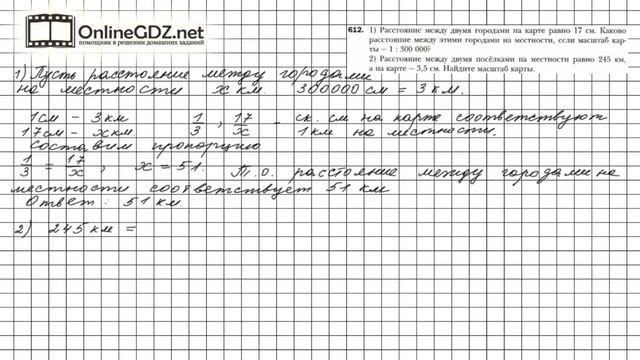 OnlineGDZ.net
помощник в решении домашних заданий
612. 1) Расстояние между двумя городами на карте равно 17 см. Каково
расстояние между этими городами на местности, если масштаб кар-
ты – 1 : 300 000?
2) Расстояние между двумя посёлками на местности равно 245 км,
а на карте – 3,5 см. Найдите масштаб карты.
1) Пусть расстояние между городами
на местности x км 300000 см = 3 км.
1 см – 3 км 1/3 , 17/x – ск. см на карте соответствуют
17 см – x км 1 км на местности.
Составим пропорцию
1/3 = 17/x , x = 51. Т.О. расстояние между городами на
местности соответствует 51 км
Ответ: 51 км
2) 245 км =